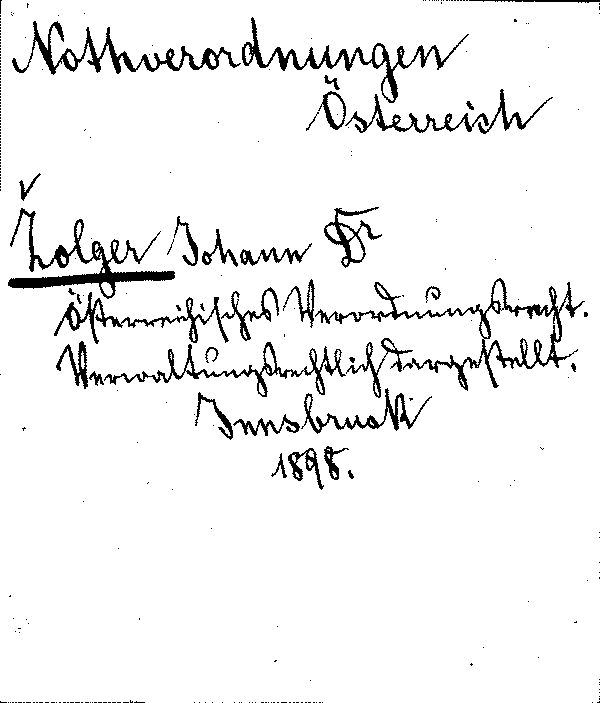 Nothverordnungen
Österreich
Žolger Johann Dr
Österreichisches Verordnungsrecht.
Verwaltungsrechtlich dargestellt.
Innsbruck
1898.